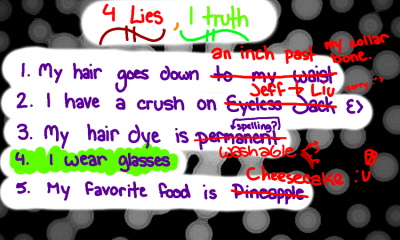 4 Lies, 1 truth
an inch past my collar bone.
1. My hair goes down to my waist
Jeff → Liu sorry :'?
2. I have a crush on Eyeless Jack ε>
(spelling?)
3. My hair dye is permanent
washable
4. I wear glasses
Cheesecake :u
5. My favorite food is Pineapple